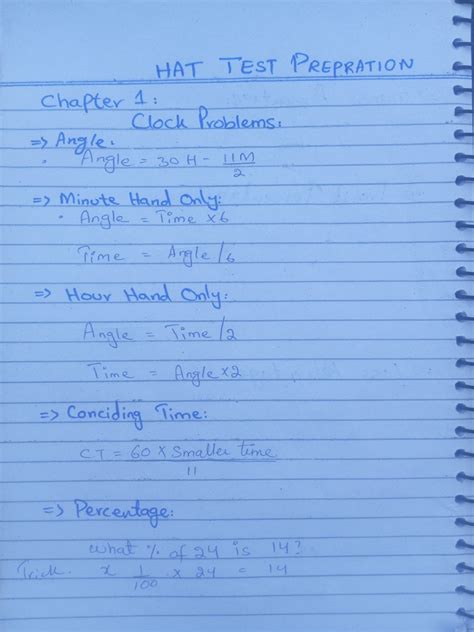 HAT TEST PREPRATION
Chapter 1:
Clock Problems:
=> Angle:
• Angle = 30 H - 11M/2
=> Minute Hand Only:
• Angle = Time x6
Time = Angle/6
=> Hour Hand Only:
Angle = Time/2
Time = Angle x2
=> Conciding Time:
CT = 60 x Smaller time/11
=> Percentage:
what % of 24 is 14?
Trick. x 1/100 x 24 = 14